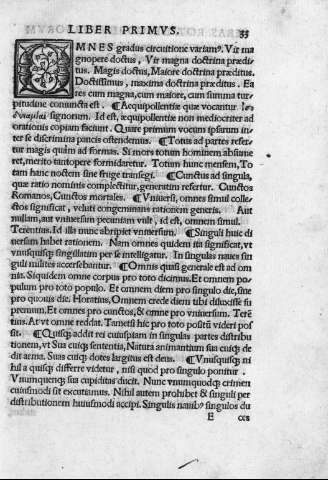 LIBER PRIMVS. 33
OMNES gradus circuitione variamꝰ. Vir ma
gnopere doctus, Vir magna doctrina prædi
tus. Magis doctus, Maiore doctrina præditus.
Doctissimus, maxima doctrina præditus. Ea
res cum magna, cum maiore, cum summa tur-
pitudine coniuncta est. ¶Aequipollentiæ quæ vocantur
signorum. Id est, æquipollentiæ non mediocriter ad
orationis copiam faciunt. Quare primum vocum ipsarum in-
ter se discrimina paucis ostendemus. ¶Totus ad partes refer-
tur magis quàm ad formas. Si mors totum hominem absume
ret, merito tantopere formidaretur. Totum hunc mensem, To
tam hanc noctem sine fruge transegi. ¶Cunctus ad singula,
quæ ratio nominis complectitur, generatim refertur. Cunctos
Romanos, Cunctos mortales. ¶Vniuersi, omnes simul colle-
ctos significat, veluti congeminans rationem generis. Aut
nullam, aut vniuersam pecuniam vult, id est, omnem simul.
Terentius. Id illa nunc abripiet vniuersum. ¶Singuli huic di
uersum habet rationem. Nam omnes quidem ita significat, vt
vnusquisq; singillatim per se intelligatur. In singulas naues sin
guli milites accersebantur. ¶Omnis quasi generale est ad om
nia. Siquidem omne corpus pro toto dicimus. Et omnem po
pulum pro toto populo. Et omnem diem pro singulo die, siue
pro quouis die. Horatius, Omnem crede diem tibi diluxisse su
premum, Et omnes pro cunctos, & omne pro vniuersum. Terē
tius. At vt omne reddat. Tametsi hic pro toto positū videri pos
sit. ¶Quisq; addit rei cuiuspiam in singulas partes distribu
tionem, vt Sua cuiq; sententia, Natura animantium sua cuiq; de
dit arma. Suas cuiq; dotes largitus est deus. ¶Vnusquisq; ni
hil a quisq; differre videtur, nisi quod pro singulo ponitur.
Vnumquenq; sua cupiditas ducit. Nunc vnumquodq; crimen
cuiusmodi sit excutiamus. Nihil autem prohibet & singuli per
distributionem huiusmodi accipi. Singulis nauibꝰ singulos du
E ces